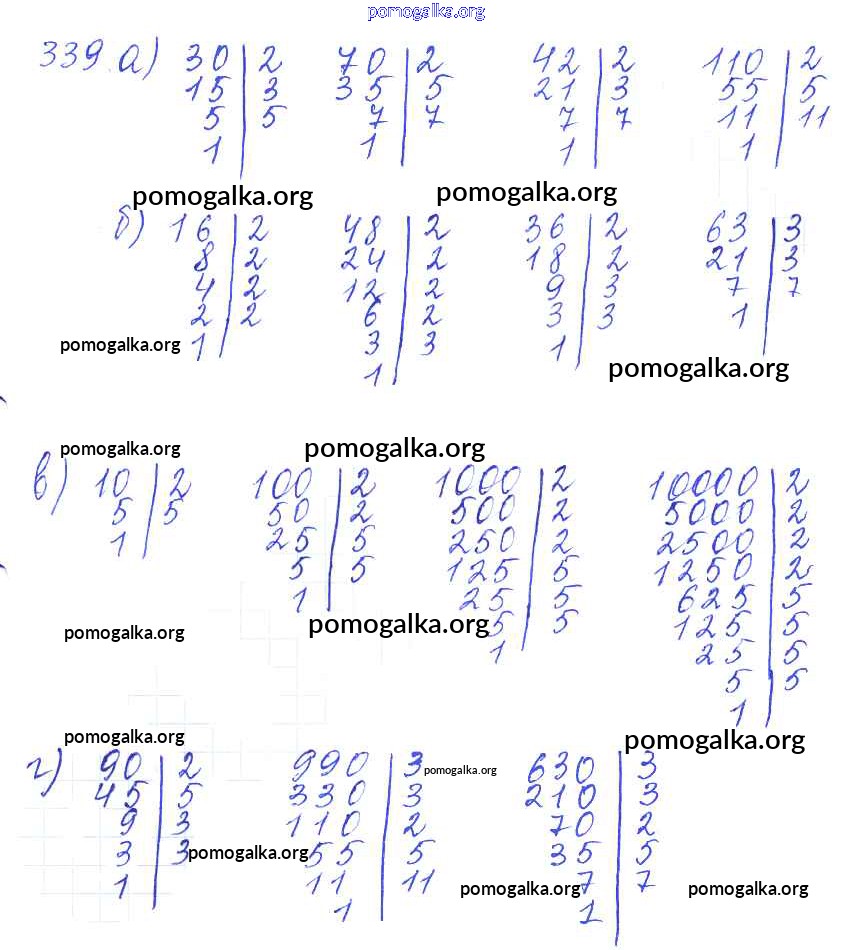 pomogalka.org
339. а) 30 | 2 70 | 2 42 | 2 110 | 2
15 | 3 35 | 5 21 | 3 55 | 5
5 | 5 7 | 7 7 | 7 11 | 11
1 | 1 | 1 | 1 |
pomogalka.org pomogalka.org
б) 16 | 2 48 | 2 36 | 2 63 | 3
8 | 2 24 | 2 18 | 2 21 | 3
4 | 2 12 | 2 9 | 3 7 | 7
2 | 2 6 | 2 3 | 3 1 |
pomogalka.org 1 | 3 | 3 1 |
1 | pomogalka.org
pomogalka.org pomogalka.org
в) 10 | 2 100 | 2 1000 | 2 10000 | 2
5 | 5 50 | 2 500 | 2 5000 | 2
1 | 25 | 5 250 | 2 2500 | 2
5 | 5 125 | 5 1250 | 2
1 | 25 | 5 625 | 5
pomogalka.org pomogalka.org 5 | 5 125 | 5
1 | 25 | 5
5 | 5
1 |
pomogalka.org pomogalka.org
г) 90 | 2 990 | 3 pomogalka.org 630 | 3
45 | 5 330 | 3 210 | 3
9 | 3 110 | 2 70 | 2
3 | 3 pomogalka.org 55 | 5 35 | 5
1 | 11 | 11 pomogalka.org 7 | 7 pomogalka.org
1 | 1 |